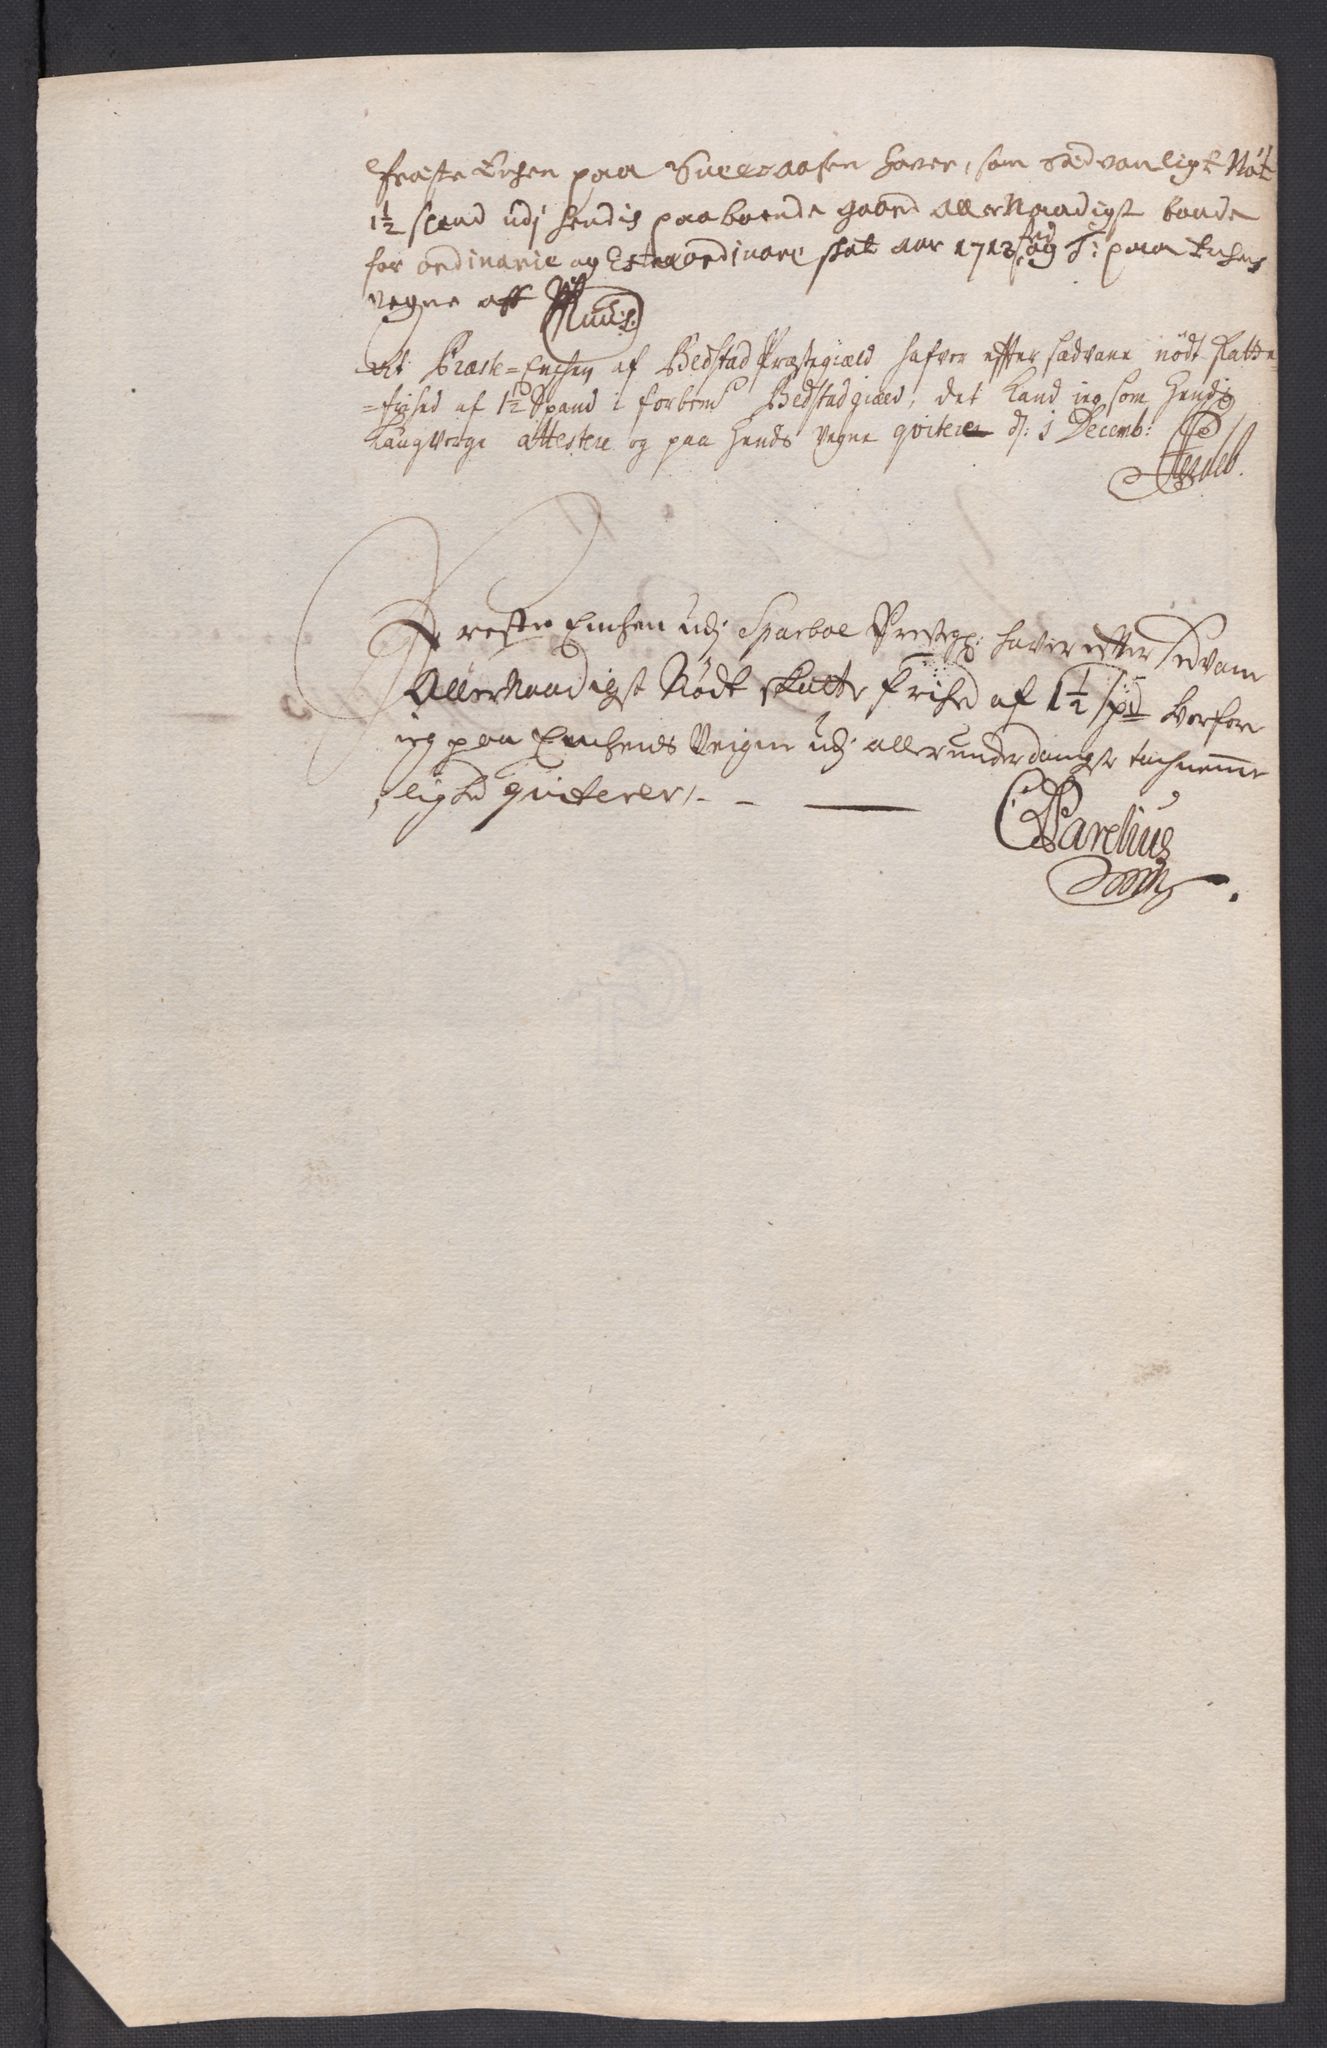 Præste Enchen paa Sneeraasen haver, som sædvanligt Nøt
1½ spand udj hendis paaboende gaard aller Naadigst baade
for ordinarie og Extraordinare skat aar 1713 og paa Enchens
vegne aff
At Præste=Enchen af Bedstad Præstegiæld hafver effter sædvane nödt skatte
=frihed af 1½ Spand i forbem: Bedstadgiæld, det kand ieg som Hendis
Laugverge attestere og paa Hends vegne qviterer d: 1 Decemb:
Preste Enchen udj Sparboe Prestegg: haver effter sedvane
AllerNaadigst Nödt skatte frihed af 1½ spd hvorfore
ieg paa Enchends Veigne udj allerunderdanigst tachnemme
lighed qviterer
Parelius